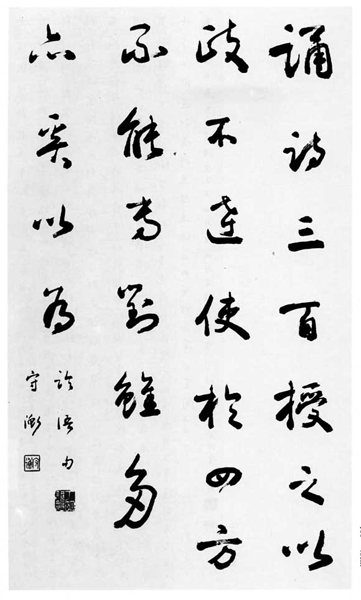 誦詩三百授之以
政不達使於四方
不能專對雖多
亦奚以為
論語句
守